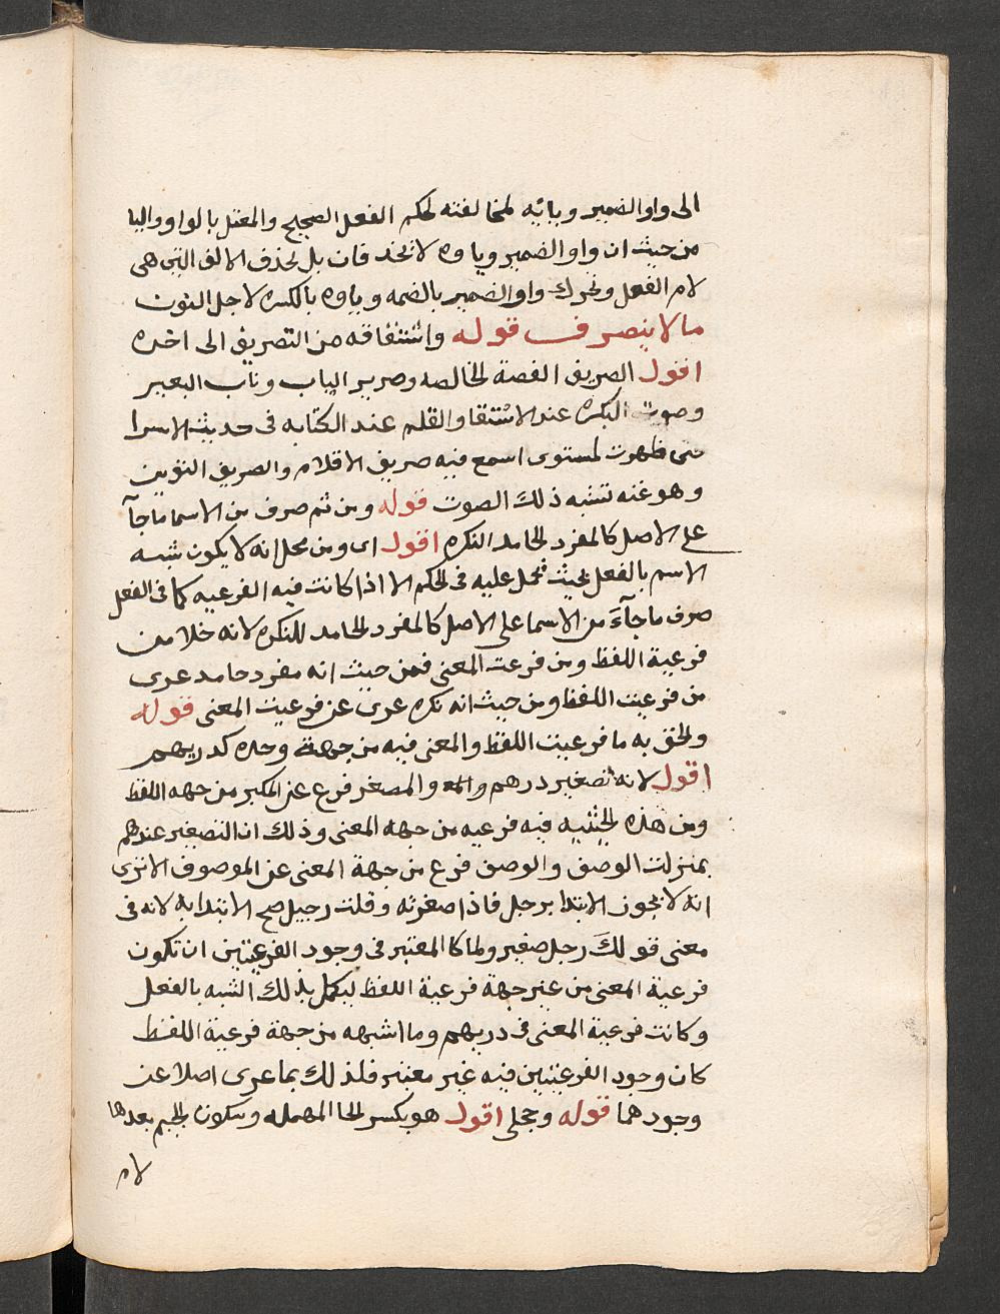 الى واو الضمير ويائه لمخالفته لحكم الفعل الصحيح والمعتل بالواو واليا
من حيث ان واو الضمير وياوه لا تحذفان بل تحذف الالف التي هي
لام الفعل وتحرك واو الضمير بالضمه وياوه بالكسره لاجل النون
ما لا ينصرف قوله واشتقاقه من التصريف الى اخره
اقول الصريف الفضة الخالصه وصرير الباب وناب البعير
وصوت البكره عند الاستقا والقلم عند الكتابه في حديث الاسرا
حتى ظهرت لمستوى اسمع فيه صريف الاقلام والصريف التنوين
وهو غنه تشبه ذلك الصوت قوله ومن ثم صرف من الاسما ما جآ
على الاصل كالمفرد الجامد النكره اقول اى ومن محل انه لا يكون شبه
الاسم بالفعل بحيث تحمل عليه في الحكم الا اذا كانت فيه الفرعيه كما في الفعل
صرف ما جآء من الاسما على الاصل كالمفرد الجامد للنكره لانه خلا من
فرعية اللفظ ومن فرعت المعنى فمن حيث انه مفرد جامد عرى
من فرعيت اللفظ ومن حيث انه نكره عرى عن فرعيت المعنى قوله
والحق به ما فرعيت اللفظ والمعنى فيه من جهة وحده كدريهم
اقول لانه تصغير درهم والمصغر فرع عن المكبر من جهه اللفظ
ومن هذه الحيثيه فيه فرعيه من جهه المعنى وذلك ان التصغير عندهم
بمنزلت الوصف والوصف فرع من جهة المعنى عن الموصوف الا ترى
انه لا يجوز الابتدا برجل فاذا صغرته وقلت رجيل صح الابتدا به لانه في
معنى قولك رجل صغير ولما كا المعتبر في وجود الفرعيتين ان تكون
فرعية المعنى من غير جهة فرعية اللفظ ليكمل بذلك الشبه بالفعل
وكانت فرعية المعنى في دريهم وما اشبهه من جهة فرعية اللفظ
كان وجود الفرعيتين فيه غير معتبر فلذلك بما عرى اصلا عن
وجودهما قوله وحجلى اقول هو بكسر الحا المهمله وسكون الجيم بعدها
لام